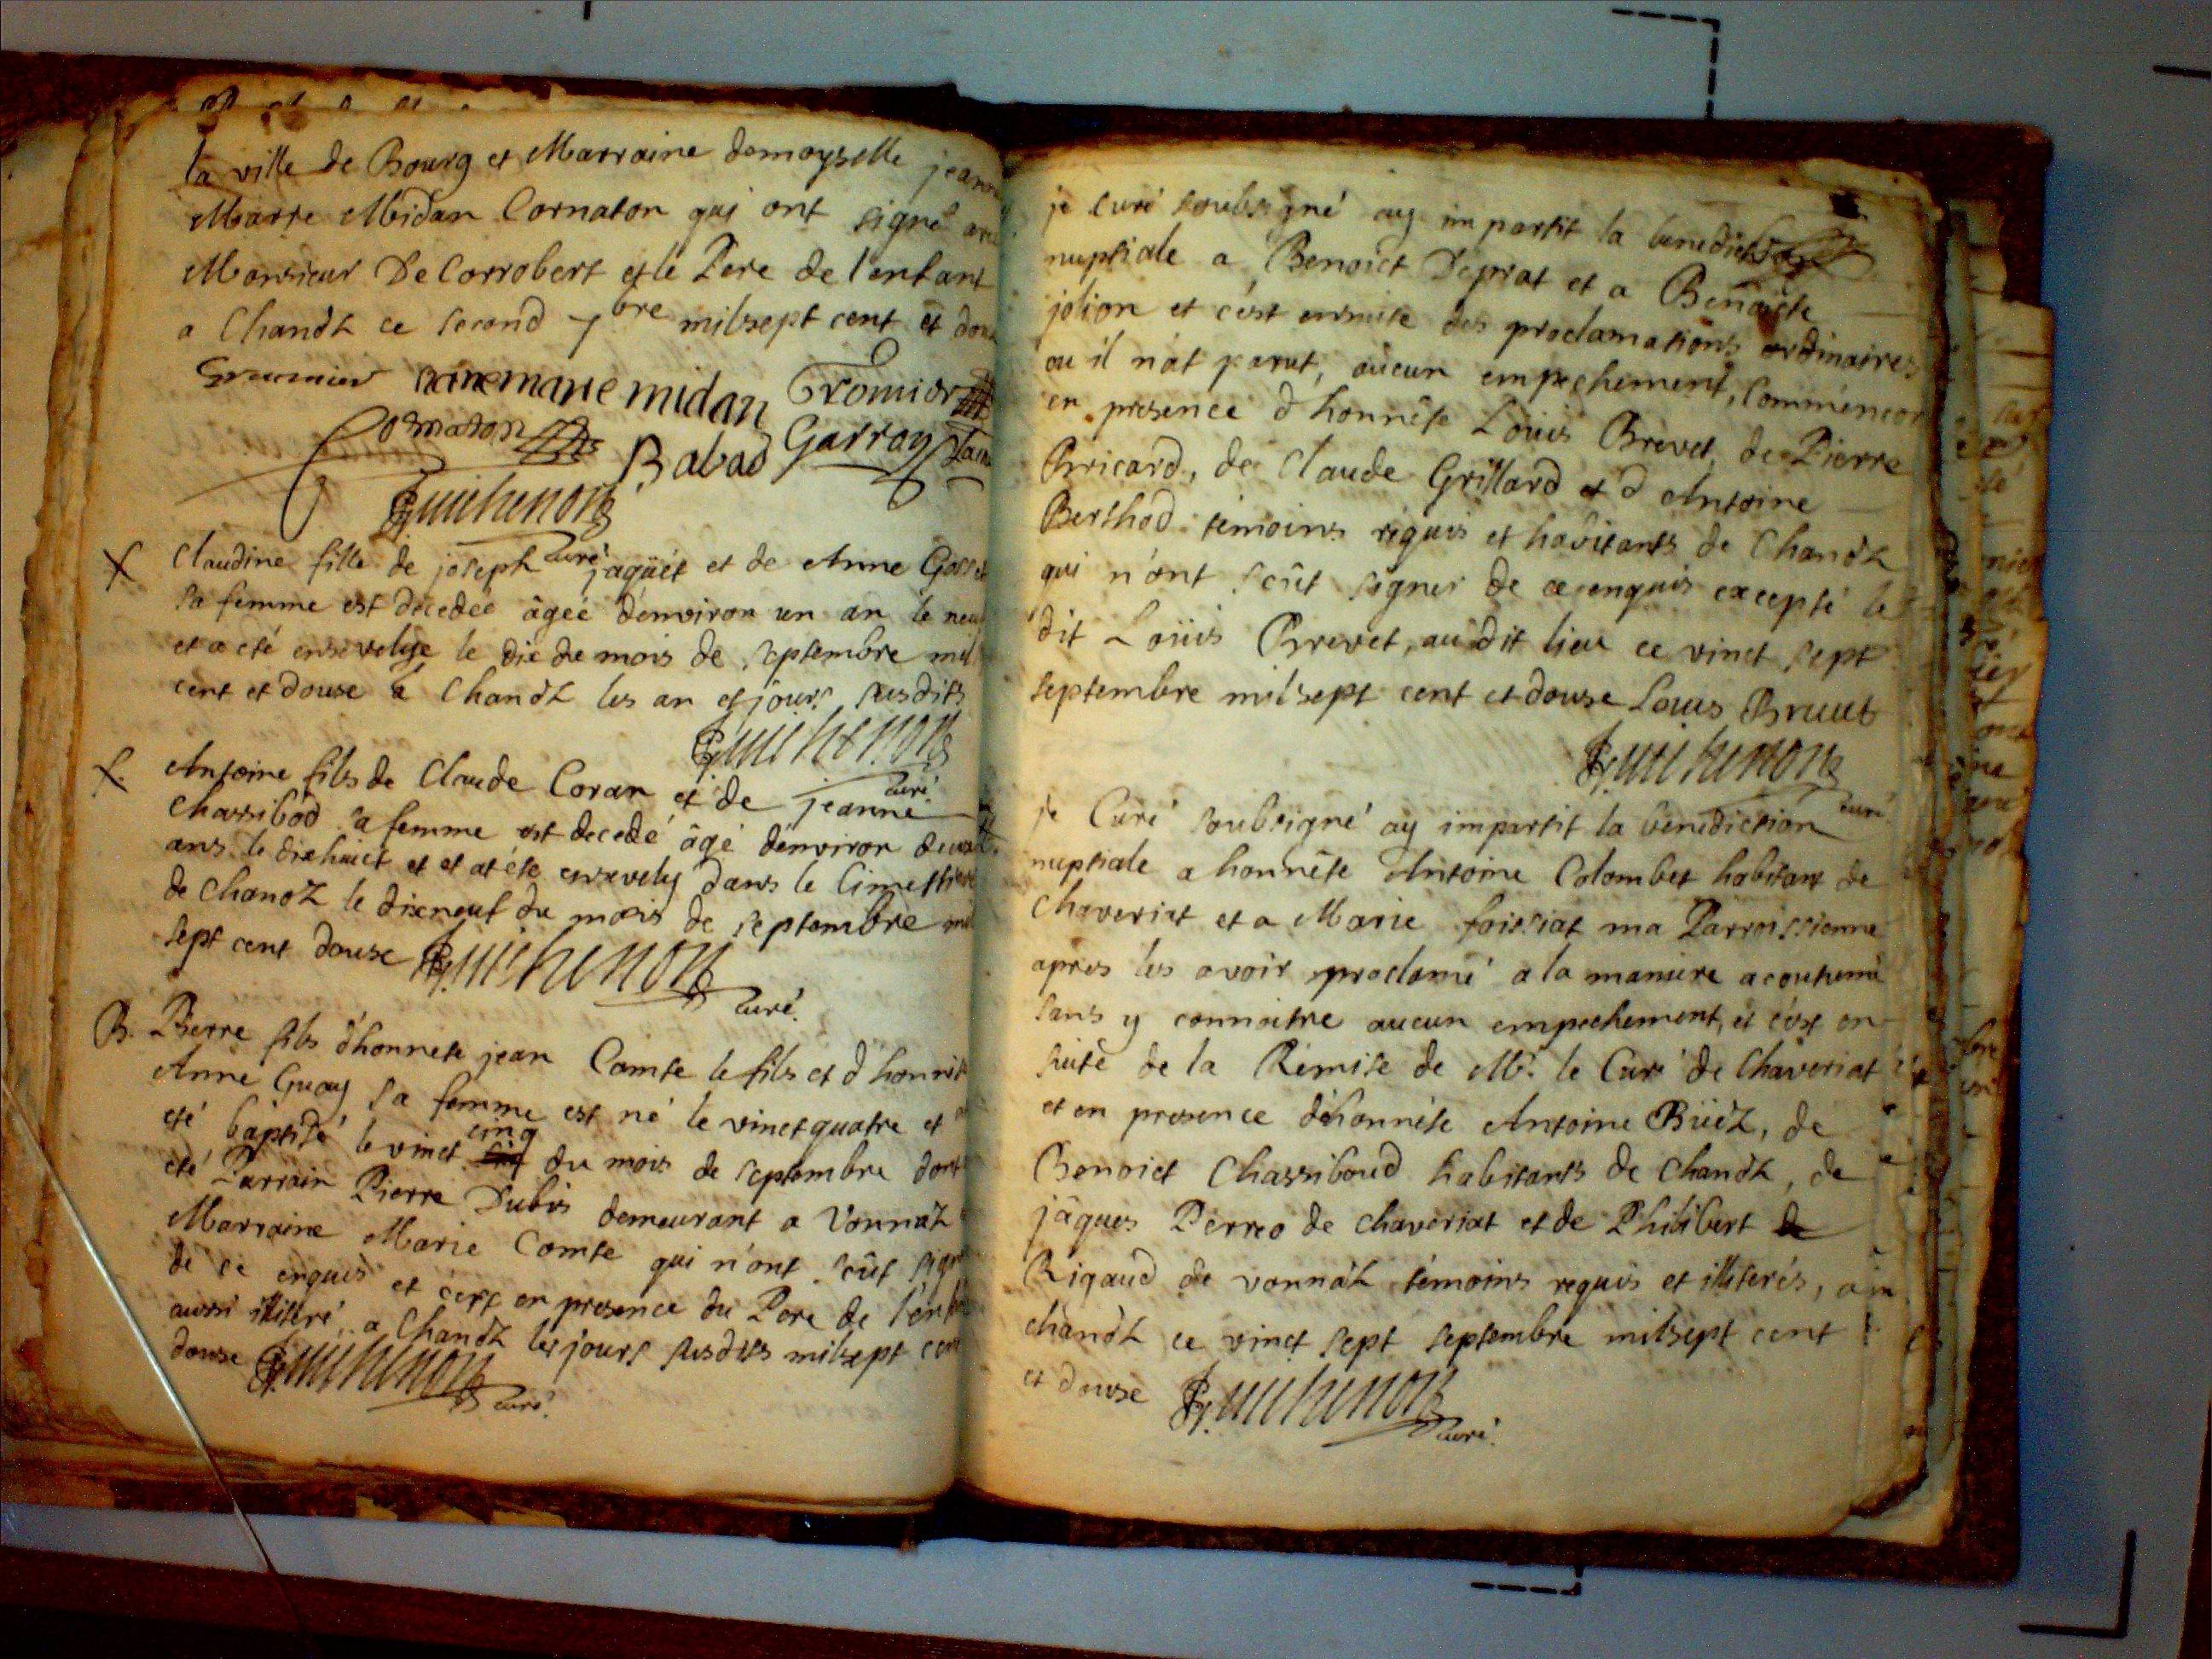 la ville de Bourg et Marraine demoyselle jeanne
Marre Midan Cornaton qui ont signé
Monsieur De Corrobert et le Pere de l'enfant
a Chanoz ce second 7bre milsept cent et
mane midan Fromier
Cornaton Babad Garron
Guichenon
curé
Claudine fille de joseph jaqüet et de Anne
sa femme est decedée âgée d'environ un an le
et a eté ensevelye le dix du mois de septembre mil
cent et douse a Chanoz les an et jours susdits
Guichenon
curé
Antoine fils de Claude Coran et de jeanne
Chassibod sa femme est decedé âgé d'environ
ans le dixhuict et et at été ensevely dans le Cimettiere
de Chanoz le dixneuf du mois de septembre mil
sept cent douse Guichenon
curé.
B. Pierre fils d'honnete jean Comte le fils et d'honnete
Anne Guay sa femme est né le vinctquatre et a
eté baptisé le vinct cinq du mois de septembre dont
eté Parrain Pierre Dubis demeurant a Vonnaz
Marraine Marie Comte qui n'ont sçût
de ce enquis et c'est en presence du Pere de
aussi illiteré a Chanoz les jours susdits milsept cent
douse Guichenon
curé.
je curé soubsigné ay impartit la benediction
nuptiale a Benoict Deprat et a Benoicte
jolion et c'est ensuite des proclamations ordinaires
ou il n'at parut, aucun empechement,
en presence d'honnête Loüis Brevet, de Pierre
Bricard, de Claude Grillard et d'Antoine
Berthod témoins réquis et habitants de Chanoz
qui n'ont sçût signer de ce enquis excepté le
dit Loüis Brevet, audit lieu ce vinct sept
septembre milsept cent et douse Louis
Guichenon
curé
je Curé soubsigné ay impartit la benediction
nuptiale a honnête Antoine Colombet habitant de
Chaveriat et a Marie foissiat ma Parroissienne
apres les avoir proclamé a la maniere acoutumé
sans y connoitre aucun empechement, et c'est en
suite de la Rémise de Mr. le Curé de Chaveriat
et en presence d'honnête Antoine Büéz, de
Benoict Chassiboud habitants de Chanoz, de
jâques Perreo de chaveriat et de Philibert
Rigaud de vonnaz témoins requis et illiterés, a
chanoz ce vinct sept septembre milsept cent
et douse Guichenon
curé.